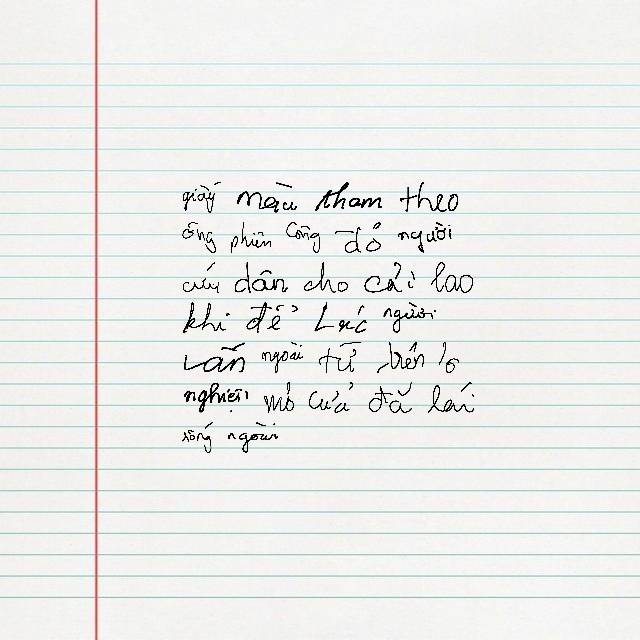 giấy màu tham theo
ông phiên công đó người
cứu dân cho cải lao
khi để Lực người
vẫn ngoài từ trên lo
nghiệm mở cửa đã lái
sống người